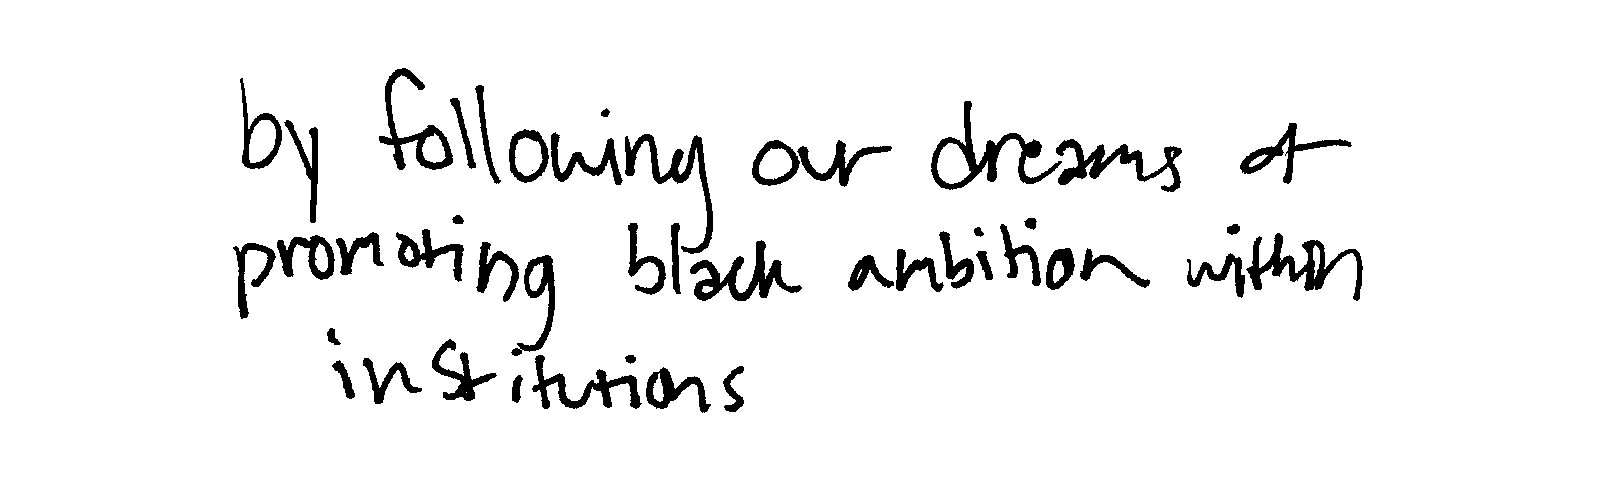 by following our dreams &
promoting black ambition within
institutions